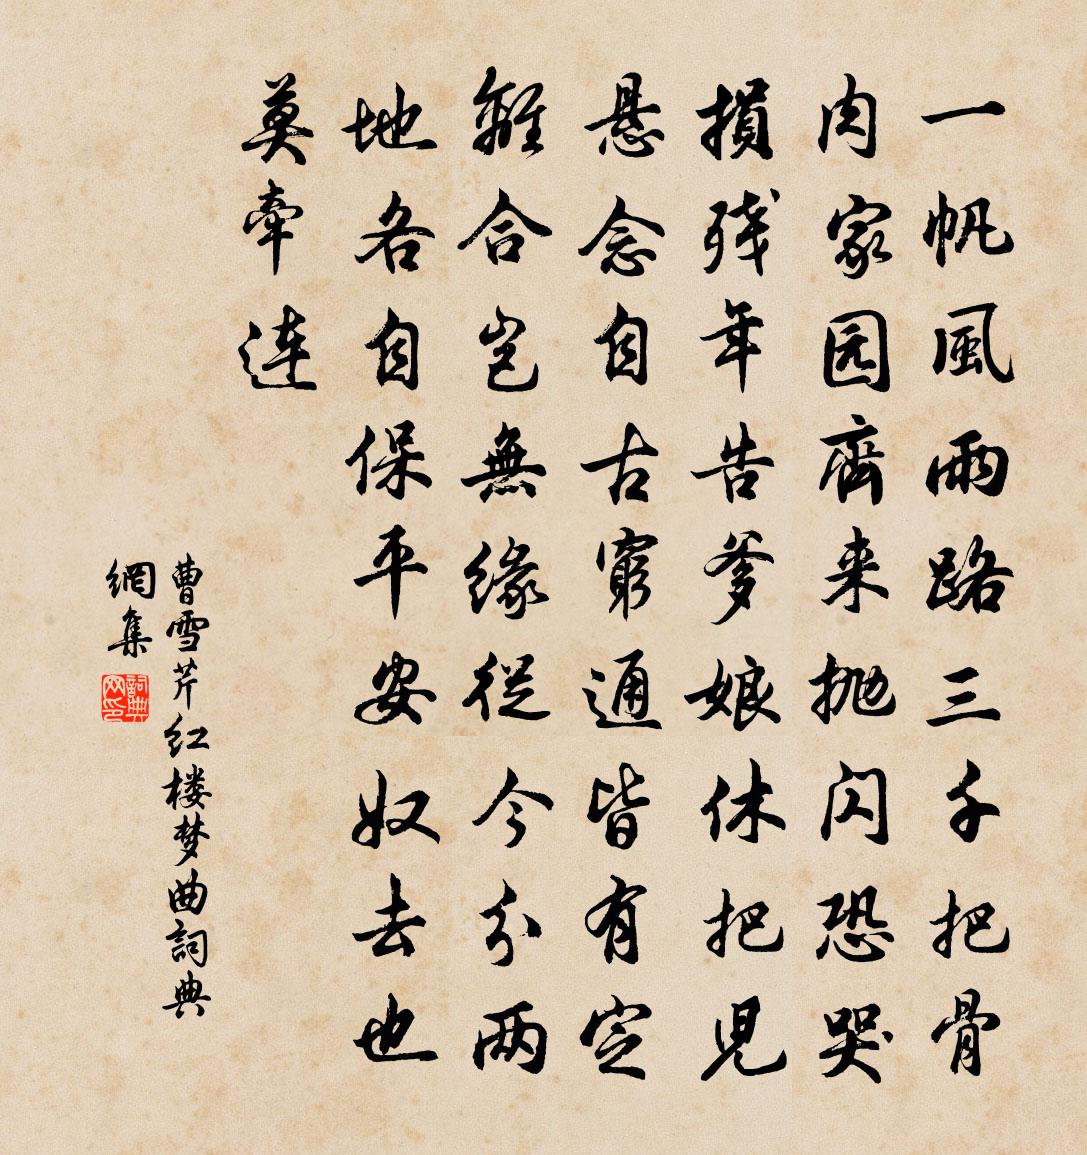 一帆風雨路三千把骨
肉家园齊来抛闪恐哭
損残年告爹娘休把児
悬念自古窮通皆有定
離合岂無緣從今分两
地各自保平安奴去也
莫牽连
曹雪芹红楼梦曲詞典
網集
詞典
网印